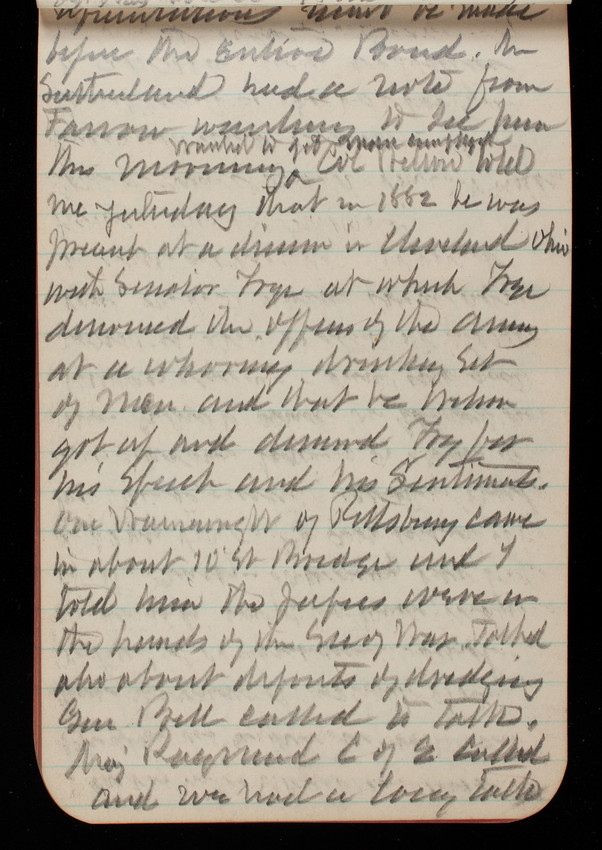 must be made
before the entire Board. Mr
Sutherland had a note from
Farrow wanting to see him
wanted to get
this morning Col Wilson told
me yesterday that in 1882 he was
present at a dinner in Cleveland Ohio
with Senator Frye at which Frye
denounced the officers of the Army
at a whoring drinking set
of men and that he Wilson
got up and denounced Frye for
his speech and his Sentiments.
One Wainwright of Pittsburg came
in about 10th St Bridge and I
told him the papers were in
the hands of the Sec of War. Talked
also about deposits of dredging
Gen Bell called to talk.
Maj Raymond C of E called
and we had a long talk